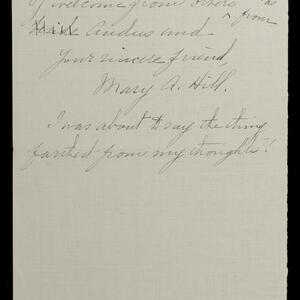 of welcome from others ^ as from
Andus and
Your sincere friend,
Mary A. Hill.
I was about to say the thing
farthest from my thoughts!